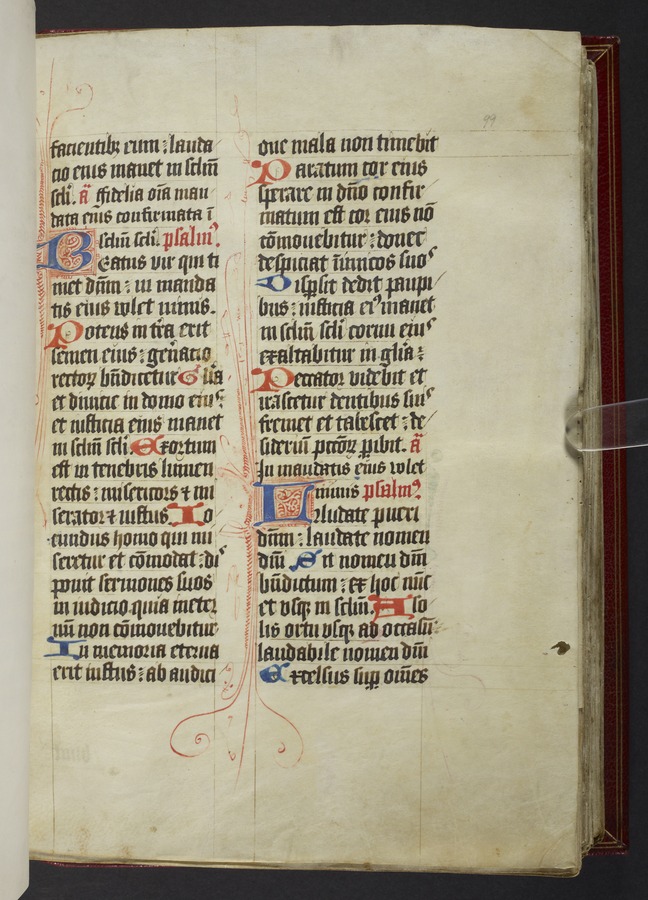 facientibꝫ eum : lauda
cio eius manet in sclm̄
scli. a᷎ ffidelia oīa man
data eius confirmata ī
sclm̄ scli. psalmꝰ.
Beatus vir qui ti
met dn̄m : in manda
tis eius volet nimis.
Potens in tr̄a erit
semen eius : gen̄acio
rectoꝝ bn̄dicetur Gl̄ia
et diuicie in domo eiuꝰ
et iusticia eius manet
in sclm̄ scli. Exortum
est in tenebris lumen
rectis : misericors ⁊ mi
serator ⁊ iustus. Io
cundus homo qui mi
seretur et cōmodat : diſ
ponit sermones suos
in iudicio quia in eter
nū non cōmouebitur
In memoria eterna
erit iustus : ab audici
one mala non timebit
Paratum cor eius
sperare in dn̄o confir
matum est cor eius nō
cōmouebitur : donec
despiciat īimicos suoꝰ
Dispsit dedit paupi
bus : iusticia eiꝰ manet
in sclm̄ scli cornu eiuꝰ
exaltabitur in gl̄ia :
Peccator videbit et
irascetur dentibus suiꝰ
fremet et tabescet : de
siderium pccōꝝ ꝑibit. a᷎
In mandatis eius volet
nimis psalmꝰ
Laudate pueri
dn̄m : laudate nomen
dn̄i Sit nomen dn̄i
bn̄dictum : ex hoc nūc
et vsqꝫ in sclm̄. A so
lis ortu vsqꝫ ad occasū
laudabile nomen dn̄i
Excelsus suꝑ omnes
99